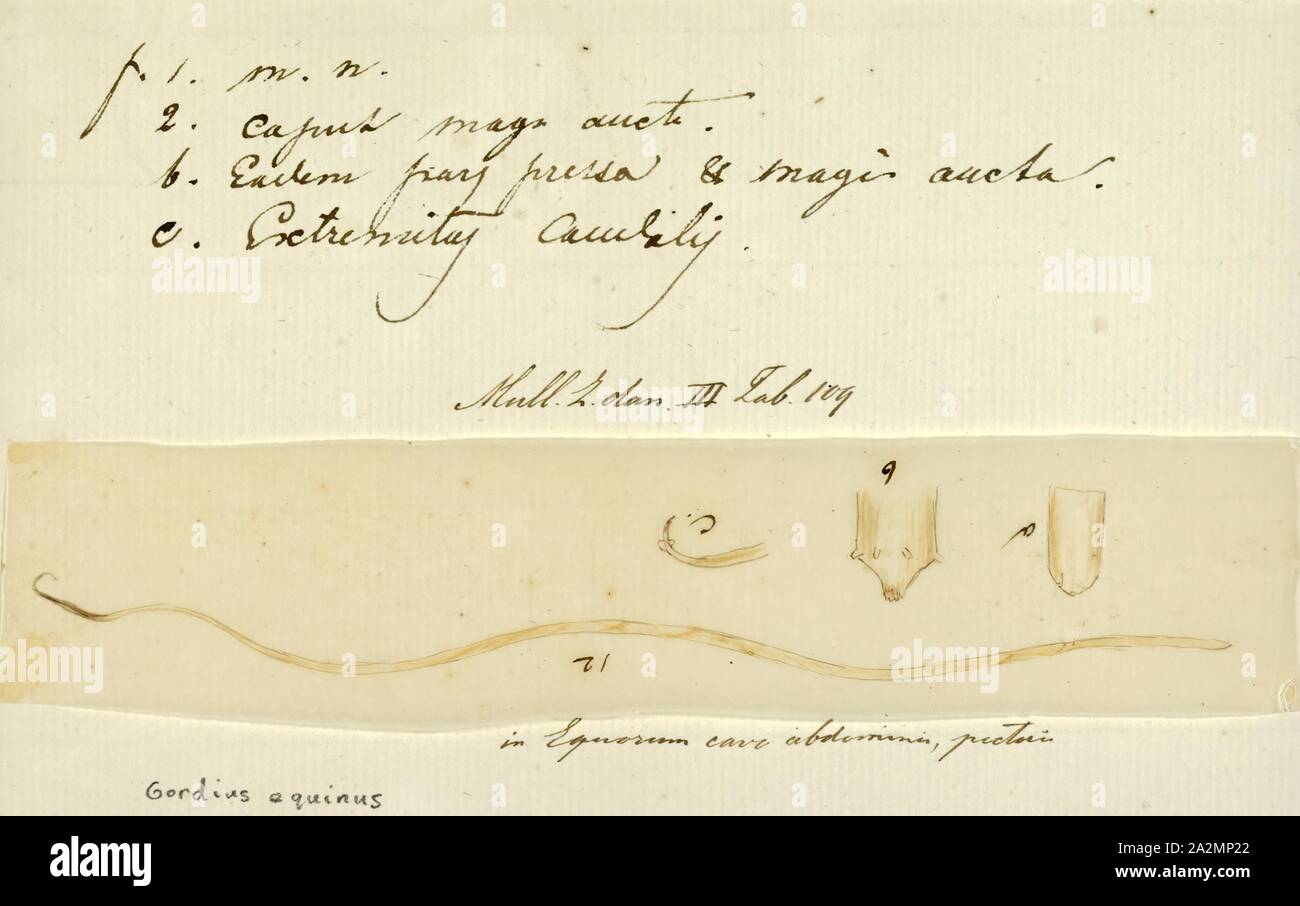 f. 1. m. n.
2. Caput magis auct.
b. Eadem pressa & magis aucta.
c. Extremitas Caudalis.
Mull. Z. dan. III Tab. 109
c
b
a
12
in Equorum cavo abdominis, pectoris
Gordius equinus
alamy
Image ID: A2MP22
www.alamy.com